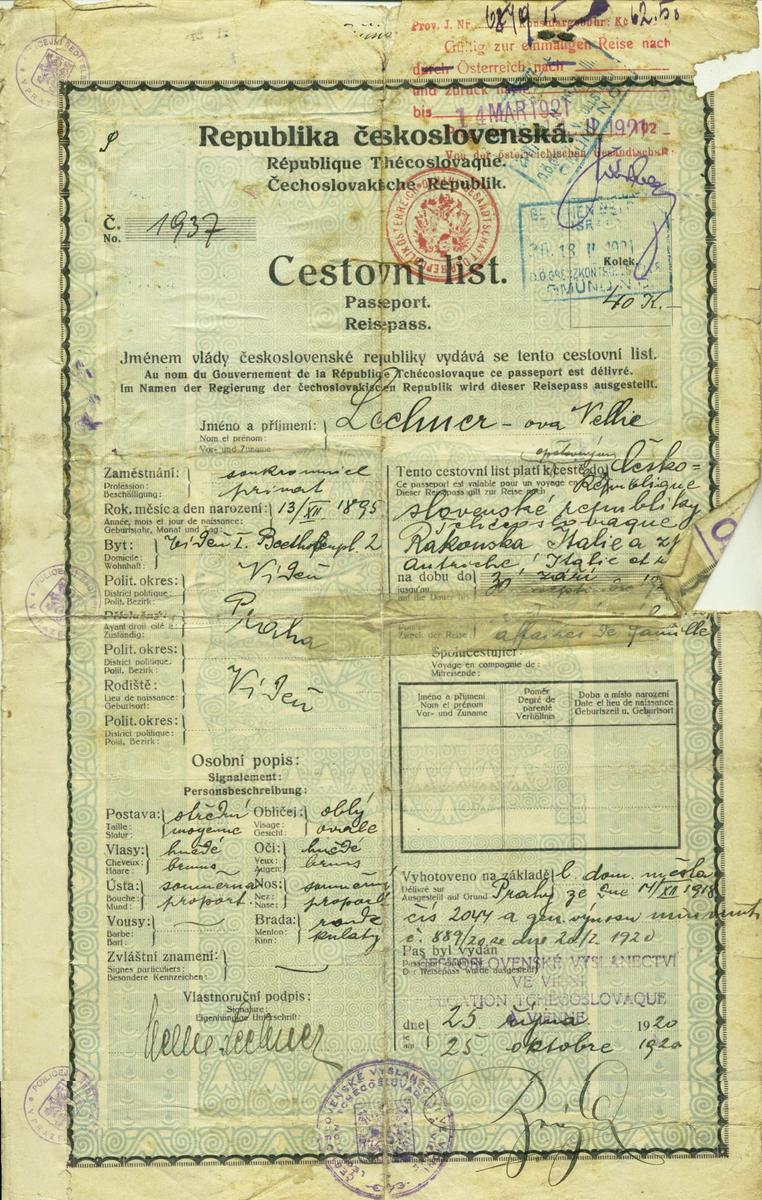 Prov. J. Nr. 6849 Konsulargebühr: Kc 62.50
Gültig zur einmaligen Reise nach
durch Österreich nach
und zurück
bis 14 MAR 1921
Von der österreichischen Gesandtschaft
Republika československá.
République Tchécoslovaque.
Čechoslovakische Republik.
Č.
No. 1937
Kolek.
40 K.-
18 II 1921
GMÜND N.Ö.
Cestovní list.
Passeport.
Reisepass.
Jménem vlády československé republiky vydává se tento cestovní list.
Au nom du Gouvernement de la République Tchécoslovaque ce passeport est délivré.
Im Namen der Regierung der čechoslovakischen Republik wird dieser Reisepass ausgestellt.
Jméno a příjmení: Lechner-ova Nellie
Nom et prénom:
Vor- und Zuname:
Zaměstnání: soukromnice
Profession: privat
Beschäftigung:
Rok, měsíc a den narození: 13/XII 1895
Année, mois et jour de naissance:
Geburtsjahr, Monat und Tag:
Byt: Vídeň I. Beethofenpl. 2
Domicile:
Wohnhaft:
Polit. okres: Vídeň
District politique:
Polit. Bezirk:
Příslušný: Praha
Ayant droit cité à:
Zuständig:
Polit. okres:
District politique.
Polit. Bezirk:
Rodiště: Vídeň
Lieu de naissance:
Geburtsort:
Polit. okres:
District politique:
Polit. Bezirk:
Osobní popis:
Signalement:
Personsbeschreibung:
Postava: střední Obličej: oblý
Taille: moyenne Visage: ovale
Statur: Gesicht:
Vlasy: hnědé Oči: hnědé
Cheveux: bruns Yeux: bruns
Haare: Augen:
Ústa: souměrná Nos: souměrný
Bouche: proport. Nez: proport.
Mund: Nase:
Vousy: Brada: ronde
Barbe: Menton: kulatý
Bart: Kinn:
Zvláštní znamení:
Signes particuliers:
Besondere Kennzeichen:
Vlastnoruční podpis:
Signature:
Eigenhändige Unterschrift:
Nellie Lechner
Tento cestovní list platí k cestě do Česko=
Ce passeport est valable pour un voyage en République
Dieser Reisepass gilt zur Reise nach
slovenské republiky
Tchécoslovaque
Rakouska Italie a
Autriche, Italie et
na dobu do 30 září
jusqu'au
auf die Dauer bis
Zweck der Reise affaires de famille
Spolucestující:
Voyage en compagnie de:
Mitreisende:
Jméno a příjmení Poměr Doba a místo narození
Nom et prénom Degré de parenté Date et lieu de naissance
Vor- und Zuname Verhältnis Geburtszeit u. Geburtsort
Vyhotoveno na základě l. dom. města
Délivré sur
Ausgestellt auf Grund Prahy ze dne 14/XII 1918
čís 2044 a gen. výnosu
č. 889/20 ze dne 20/2. 1920
Pas byl vydán
Der Reisepass wurde ausgestellt
ČESKOSLOVENSKÉ VYSLANECTVÍ
VE VÍDNI
LEGATION TCHÉCOSLOVAQUE
À VIENNE
dne 25 října 1920
le 25 oktobre 1920
am